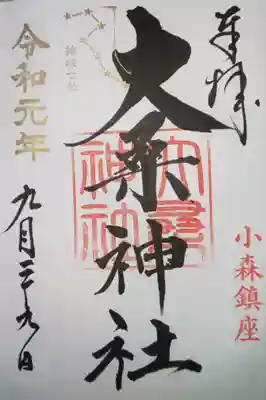 奉拝
小森鎮座
大桒神社
結城七社
令和元年
九月二十九日